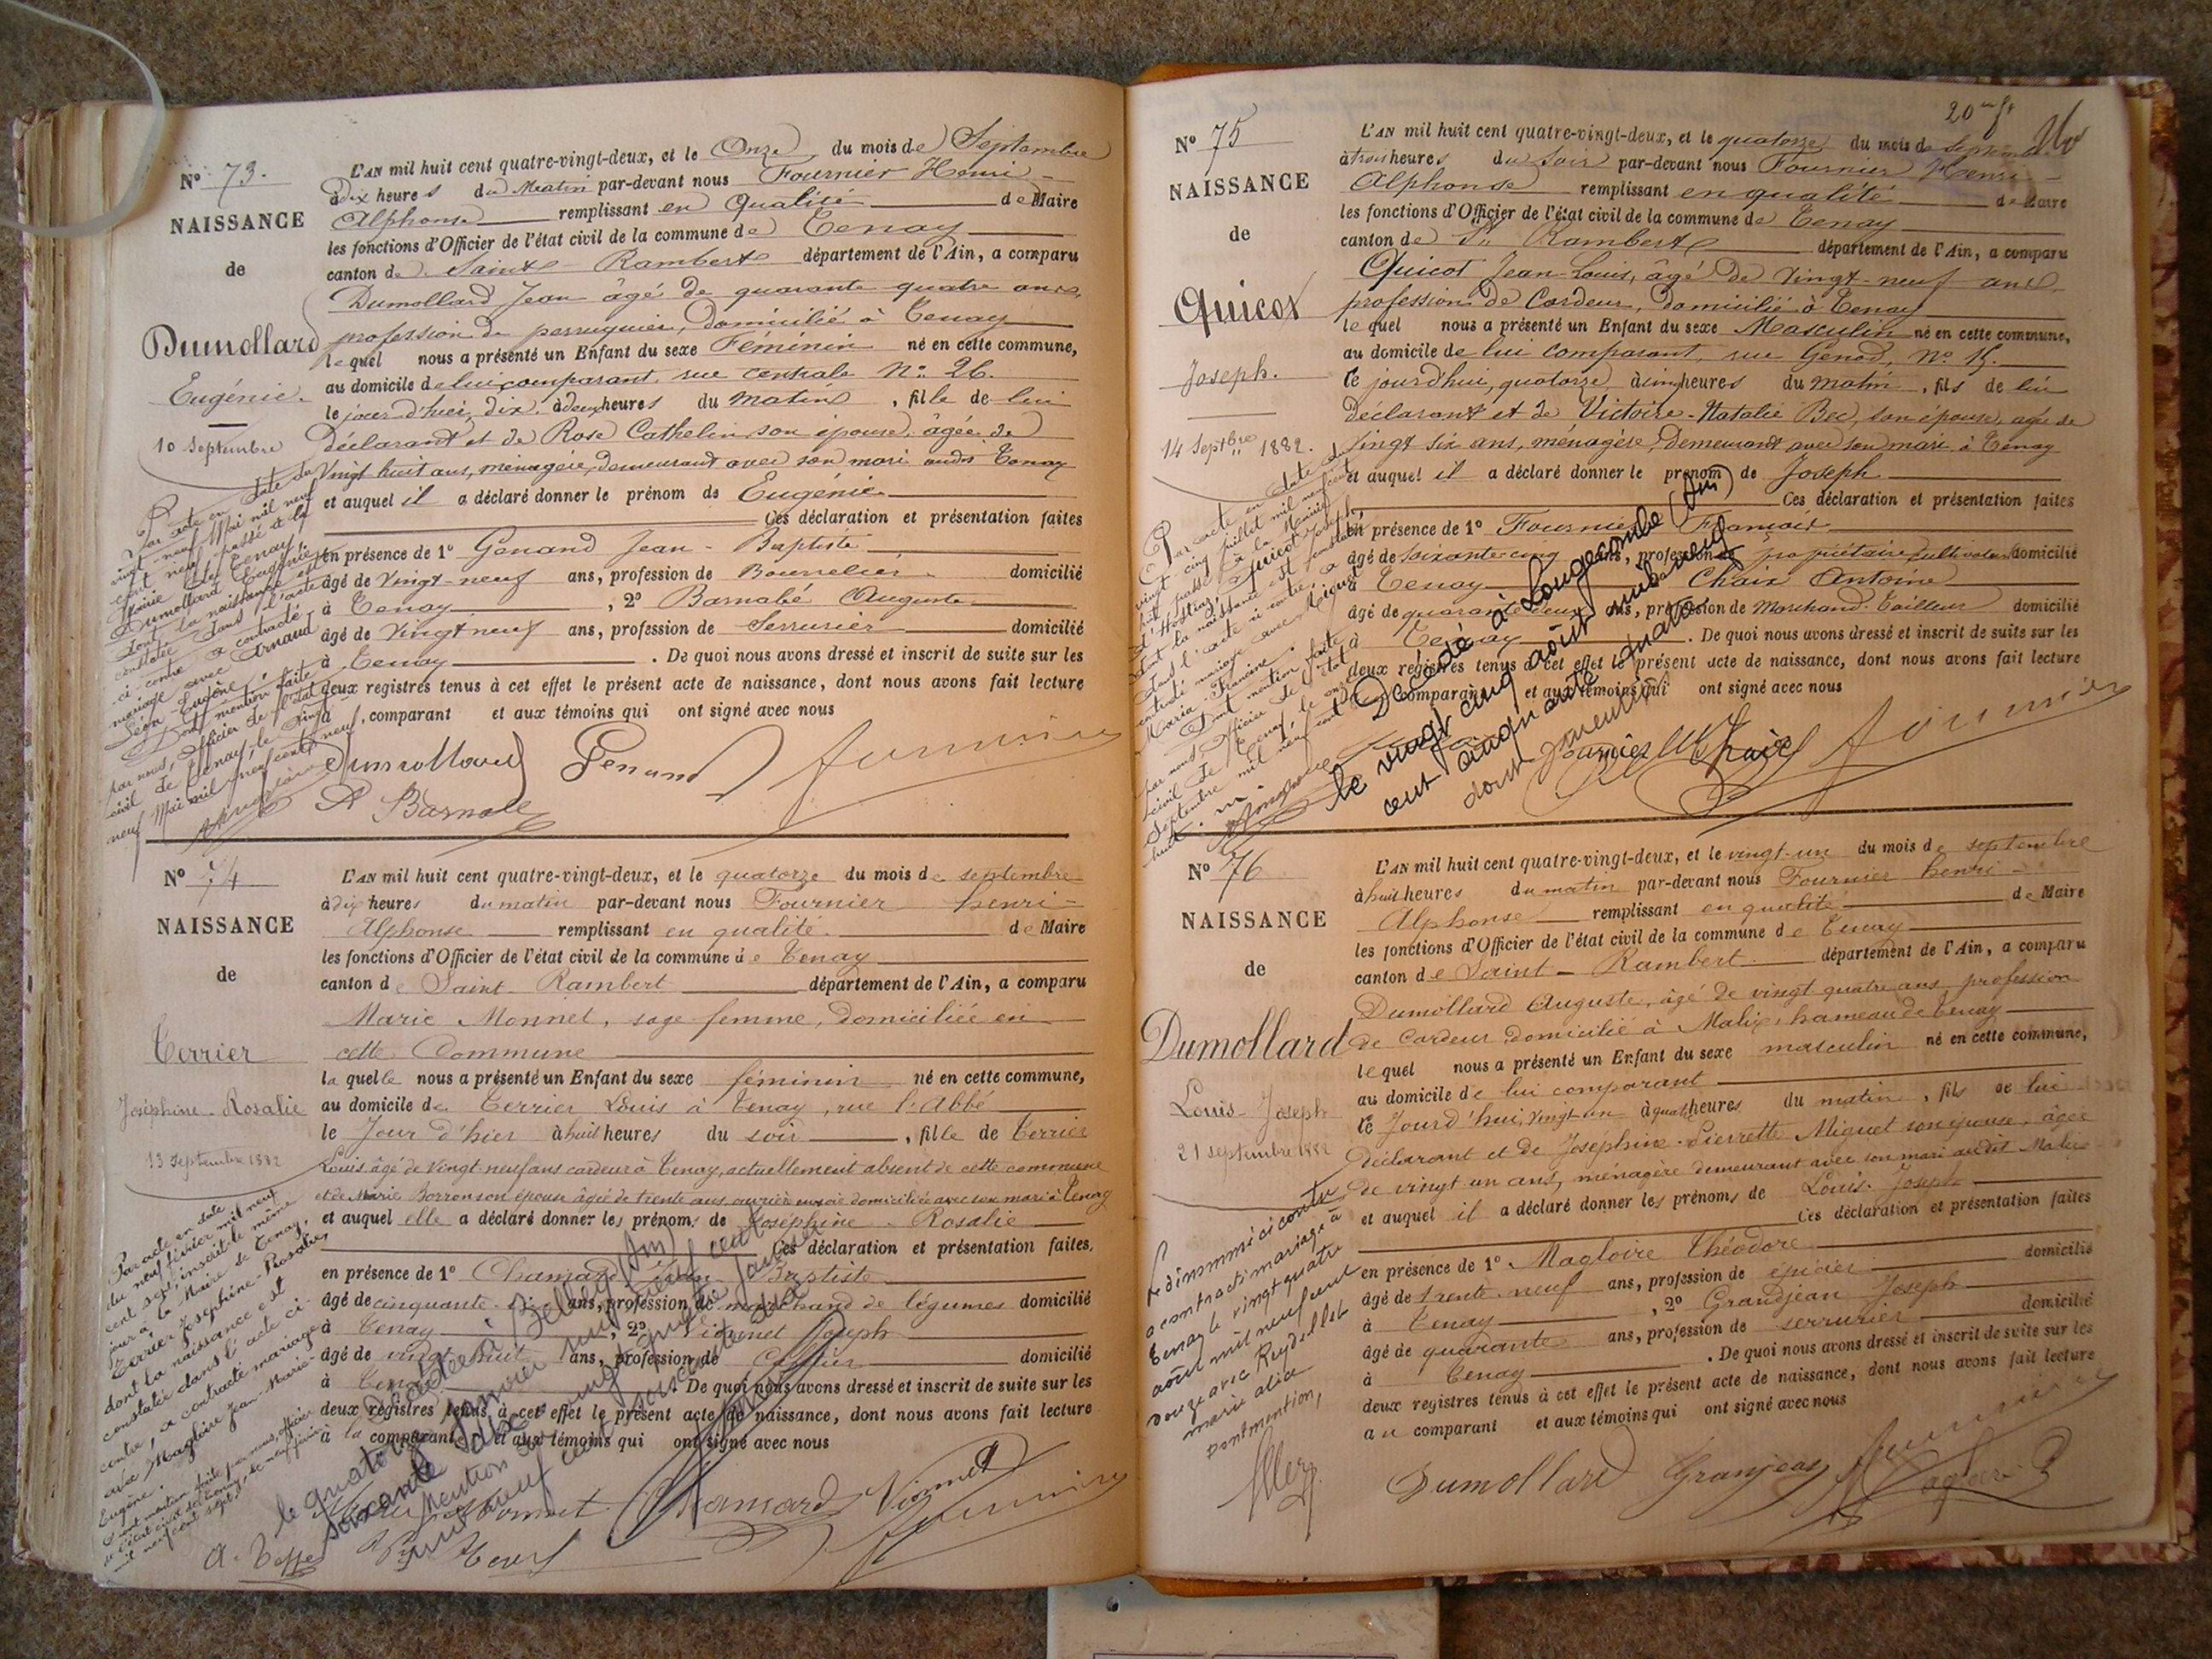 Nº 73.
NAISSANCE
de
Dumollard
Eugénie.
10 Septembre
L'AN mil huit cent quatre-vingt-deux, et le Onze du mois de Septembre
à dix heures du Matin par-devant nous Fournier Henri
Alphonse remplissant en qualité de Maire
les fonctions d'Officier de l'état civil de la commune de Tenay
canton de Saint-Rambert département de l'Ain, a comparu
Dumollard Jean âgé de quarante quatre ans,
profession de perruquier, domicilié à Tenay
lequel nous a présenté un Enfant du sexe Féminin né en cette commune,
au domicile de lui comparant, rue centrale Nº 26.
le jour d'hier, dix, à deux heures du matin, fille de lui
déclarant et de Rose Cathelin son épouse, âgée de
Vingt huit ans, ménagère, demeurant avec son mari audit Tenay
et auquel il a déclaré donner le prénom de Eugénie
Ces déclaration et présentation faites
en présence de 1º Genand Jean-Baptiste
âgé de vingt-neuf ans, profession de Bourrelier domicilié
à Tenay, 2º Barnabé Auguste
âgé de Vingt neuf ans, profession de Serrurier domicilié
à Tenay. De quoi nous avons dressé et inscrit de suite sur les
deux registres tenus à cet effet le présent acte de naissance, dont nous avons fait lecture
comparant et aux témoins qui ont signé avec nous
Par acte en date du
vingt-neuf Mai mil neuf
cent neuf passé à la
Mairie de Tenay
Dumollard Eugénie
dont la naissance est
constatée dans l'acte
ci-contre a contracté
mariage avec Arnaud
Léon-Eugène.
Dont mention faite
par nous, officier de l'état
civil de Tenay, le
neuf Mai mil neuf cent neuf.
Dumollard Genand Fournier
A Barnabé
Nº 74
NAISSANCE
de
Terrier
Joséphine-Rosalie
13 Septembre 1882
L'AN mil huit cent quatre-vingt-deux, et le quatorze du mois de septembre
à dix heures du matin par-devant nous Fournier henri
Alphonse remplissant en qualité de Maire
les fonctions d'Officier de l'état civil de la commune de Tenay
canton de Saint-Rambert département de l'Ain, a comparu
Marie Monnet, sage femme, domiciliée en
cette Commune
laquelle nous a présenté un Enfant du sexe féminin né en cette commune,
au domicile de Terrier Louis à Tenay, rue l'Abbé
le Jour d'hier à huit heures du soir, fille de Terrier
Louis âgé de Vingt neuf ans cardeur à Tenay, actuellement absent de cette commune
et de Marie Borron son épouse âgée de trente ans, domiciliée avec son mari à Tenay
et auquel elle a déclaré donner les prénoms de Joséphine-Rosalie
Ces déclaration et présentation faites,
en présence de 1º Chamard Jean Baptiste
âgé de cinquante ans, profession de marchand de légumes domicilié
à Tenay, 2º Vionnet Joseph
âgé de vingt huit ans, profession de domicilié
à Tenay. De quoi nous avons dressé et inscrit de suite sur les
deux registres tenus à cet effet le présent acte de naissance, dont nous avons fait lecture
à la comparante et aux témoins qui ont signé avec nous
Par acte en date
du neuf février mil neuf
cent sept, inscrit le même
jour à la Mairie de Tenay,
Terrier Joséphine-Rosalie
dont la naissance est
constatée dans l'acte ci-
contre, a contracté mariage
avec Magloire Jean-Marie-
Eugène.
Dont mention faite par nous, officier
de l'état civil de Tenay, le neuf février
mil neuf cent sept.
Décédée à Belley (Ain)
le quatorze Janvier mil neuf cent
soixante
Monnet Chamard Vionnet
Fournier
20me ft
Nº 75
NAISSANCE
de
Quicot
Joseph.
14 Septbre 1882.
L'AN mil huit cent quatre-vingt-deux, et le quatorze du mois de Septembre
à trois heures du Soir par-devant nous Fournier Henri
Alphonse remplissant en qualité de Maire
les fonctions d'Officier de l'état civil de la commune de Tenay
canton de St Rambert département de l'Ain, a comparu
Quicot Jean-Louis, âgé de vingt-neuf ans
profession de Cardeur, domicilié à Tenay
lequel nous a présenté un Enfant du sexe Masculin né en cette commune,
au domicile de lui comparant, rue Genod, Nº 15.
le jourd'hui, quatorze, à cinq heures du matin, fils de lui
déclarant et de Victoire-Natalie Bec, son épouse, âgée de
Vingt six ans, ménagère, demeurant avec son mari à Tenay
et auquel il a déclaré donner le prénom de Joseph
Ces déclaration et présentation faites
en présence de 1º Fournier François
âgé de soixante cinq ans, profession de propriétaire cultivateur domicilié
à Tenay Chaix Antoine
âgé de quarante deux ans, profession de Marchand-Tailleur domicilié
à Tenay. De quoi nous avons dressé et inscrit de suite sur les
deux registres tenus à cet effet le présent acte de naissance, dont nous avons fait lecture
comparant et aux témoins qui ont signé avec nous
Par acte en date du
vingt-cinq juillet mil neuf cent
huit passé à la Mairie
d'Hostiaz, Quicot Joseph,
dont la naissance est constatée
dans l'acte ci-contre, a
contracté mariage avec Miguet
Maria-Francine.
Dont mention faite
par nous, officier de l'état
civil de Tenay, le onze
Septembre mil neuf cent
huit.
Décédé à Longecombe (Ain)
le vingt cinq août mil neuf
cent cinquante quatre
dont mention
Fournier Chaix Fournier
Nº 76
NAISSANCE
de
Dumollard
Louis-Joseph
21 septembre 1882
L'AN mil huit cent quatre-vingt-deux, et le vingt-un du mois de septembre
à huit heures du matin par-devant nous Fournier henri
Alphonse remplissant en qualité de Maire
les fonctions d'Officier de l'état civil de la commune de Tenay
canton de Saint-Rambert département de l'Ain, a comparu
Dumollard Auguste, âgé de vingt quatre ans profession
de Cardeur domicilié à Malix, hameau de Tenay
lequel nous a présenté un Enfant du sexe masculin né en cette commune,
au domicile de lui comparant
le Jourd'hui, vingt-un à quatre heures du matin, fils de lui
déclarant et de Joséphine-Pierrette Miguet son épouse, âgée
de vingt un ans, ménagère demeurant avec son mari audit Malix
et auquel il a déclaré donner les prénoms de Louis-Joseph
Ces déclaration et présentation faites
en présence de 1º Magloire Théodore
âgé de trente neuf ans, profession de épicier domicilié
à Tenay, 2º Grandjean Joseph
âgé de quarante ans, profession de serrurier domicilié
à Tenay. De quoi nous avons dressé et inscrit de suite sur les
deux registres tenus à cet effet le présent acte de naissance, dont nous avons fait lecture
au comparant et aux témoins qui ont signé avec nous
Le dénommé ci contre
a contracté mariage à
Tenay le vingt quatre
août mil neuf cent
douze avec Reydellet
marie
dont mention,
Dumollard Granjean Magloire
Fournier